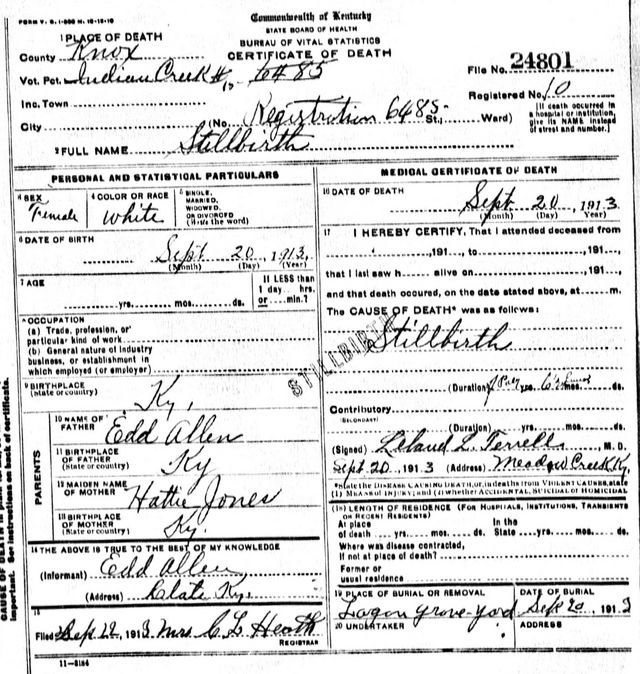 FORM V. S. 1-500 M. 10-12-10
Commonwealth of Kentucky
STATE BOARD OF HEALTH
BUREAU OF VITAL STATISTICS
CERTIFICATE OF DEATH
1 PLACE OF DEATH
County Knox
Vot. Pct. Indian Creek 6485
File No. 24801
Inc. Town
Registered No. 10
City (No. Registration 6485 St., Ward)
[If death occurred in a hospital or institution, give its NAME instead of street and number.]
2 FULL NAME Stillbirth
PERSONAL AND STATISTICAL PARTICULARS
3 SEX Female
4 COLOR OR RACE White
5 SINGLE, MARRIED, WIDOWED, OR DIVORCED (Write the word)
6 DATE OF BIRTH Sept 20, 1913,
(Month) (Day) (Year)
7 AGE
yrs. mos. ds.
If LESS than 1 day hrs. or min.?
8 OCCUPATION
(a) Trade, profession, or particular kind of work
(b) General nature of industry business, or establishment in which employed (or employer)
9 BIRTHPLACE (State or country) Ky,
PARENTS
10 NAME OF FATHER Edd Allen
11 BIRTHPLACE OF FATHER (State or country) Ky
12 MAIDEN NAME OF MOTHER Hattie Jones
13 BIRTHPLACE OF MOTHER (State or country) Ky.
14 THE ABOVE IS TRUE TO THE BEST OF MY KNOWLEDGE
(Informant) Edd Allen
(Address) Clate Ky.
15
Filed Sep 22, 1913 Mrs C L Heath
REGISTRAR
11-3184
MEDICAL CERTIFICATE OF DEATH
16 DATE OF DEATH Sept 20, 1913
(Month) (Day) (Year)
17 I HEREBY CERTIFY, That I attended deceased from
, 191 to , 191 ,
that I last saw h alive on , 191 ,
and that death occured, on the date stated above, at m.
The CAUSE OF DEATH* was as follows:
Stillbirth
STILLBIRTH
(Duration) yrs. mos. ds.
Contributory
(SECONDARY)
(Duration) yrs. mos. ds.
(Signed) Leland L. Terrell, M. D.
Sept 20, 1913 (Address) Meadow Creek Ky.
*State the DISEASE CAUSING DEATH, or, in deaths from VIOLENT CAUSES, state (1) MEANS OF INJURY; and (2) whether ACCIDENTAL, SUICIDAL OR HOMICIDAL
18 LENGTH OF RESIDENCE (FOR HOSPITALS, INSTITUTIONS, TRANSIENTS OR RECENT RESIDENTS)
At place of death yrs. mos. ds. In the State yrs. mos. ds.
Where was disease contracted, if not at place of death?
Former or usual residence
19 PLACE OF BURIAL OR REMOVAL Logan grove-yard
DATE OF BURIAL Sep 20, 1913
20 UNDERTAKER
ADDRESS
CAUSE OF DEATH
important. See instructions on back of certificate.